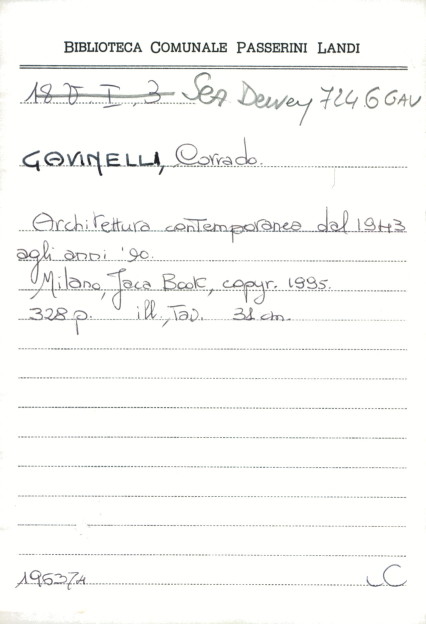 BIBLIOTECA COMUNALE PASSERINI LANDI
18 D. I. 3 Sea Dewey 724.6 GAV
GAVINELLI, Corrado.
Architettura contemporanea dal 1943
agli anni '90.
Milano, Jaca Book, copyr. 1995.
328 p. ill., Tav. 31 cm.
195374